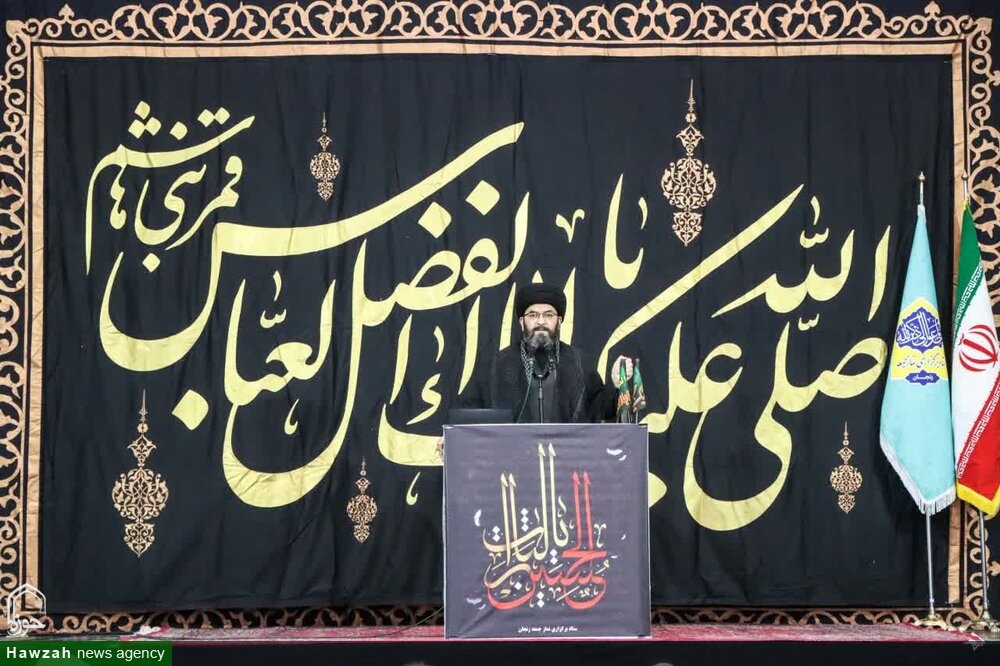 صلی الله علیک یا اباالفضل العباس
قمر بنی هاشم
یا لثارات
الحسین
ستاد برگزاری نماز جمعه زنجان
زنجان
حوزه
Hawzah news agency